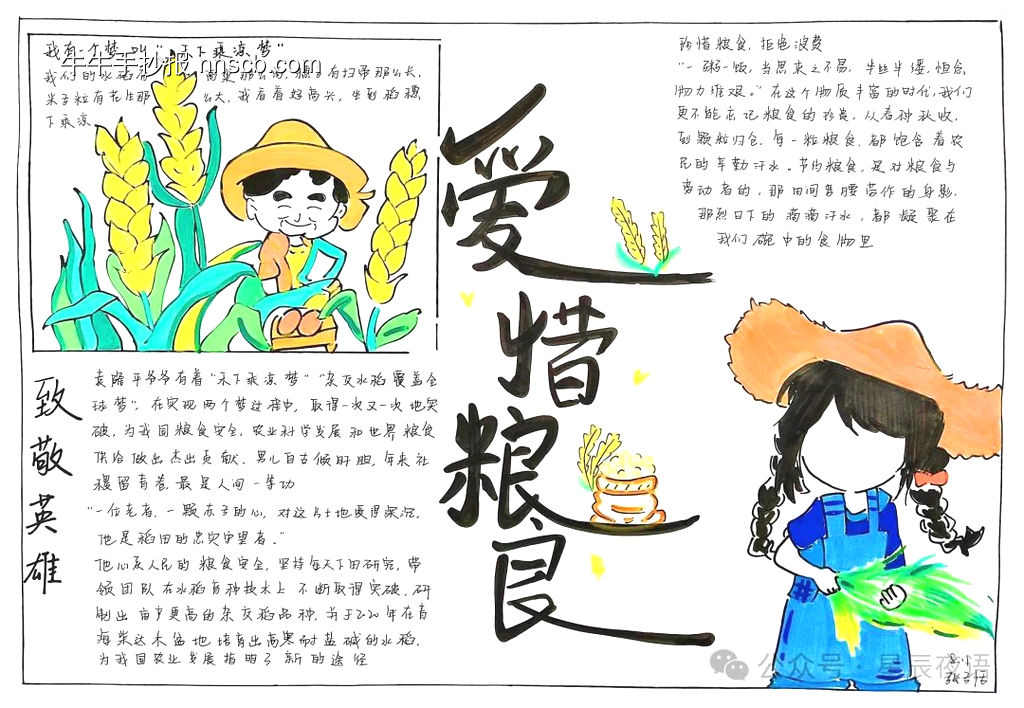 我有一个梦,叫"禾下乘凉梦"
牛牛手抄报 nnscb.com
我们的水稻有高粱那么高,穗子有扫帚那么长,
米子粒有花生那么大,我看着好高兴,坐到稻穗
下乘凉
致敬英雄
袁隆平爷爷有着"禾下乘凉梦""杂交水稻覆盖全
球梦"。在实现两个梦过程中,取得一次又一次地突
破,为我国粮食安全,农业科学发展和世界粮食
供给做出杰出贡献。男儿自古倾肝胆,年来社
稷留青卷,最是人间一等功
"一位老者,一颗赤子的心,对这片土地爱得深沉,
他是稻田的忠实守望者。"
他心系人民的粮食安全,坚持每天下田研究,带
领团队在水稻育种技术上不断取得突破,研
制出亩产更高的杂交稻品种,并于2020年在青
海柴达木盆地培育出高寒耐盐碱的水稻,
为我国农业发展指明了新的途径
爱惜粮食
珍惜粮食,拒绝浪费
"一粥一饭,当思来之不易,半丝半缕,恒念
物力维艰。"在这个物质丰富的时代,我们
更不能忘记粮食的珍贵,从春种秋收,
到颗粒归仓,每一粒粮食,都饱含着农
民的辛勤汗水。节约粮食,是对粮食与
劳动者的,那田间弯腰劳作的身影,
那烈日下的滴滴汗水,都凝聚在
我们碗中的食物里
公众号·星辰夜语
8.1